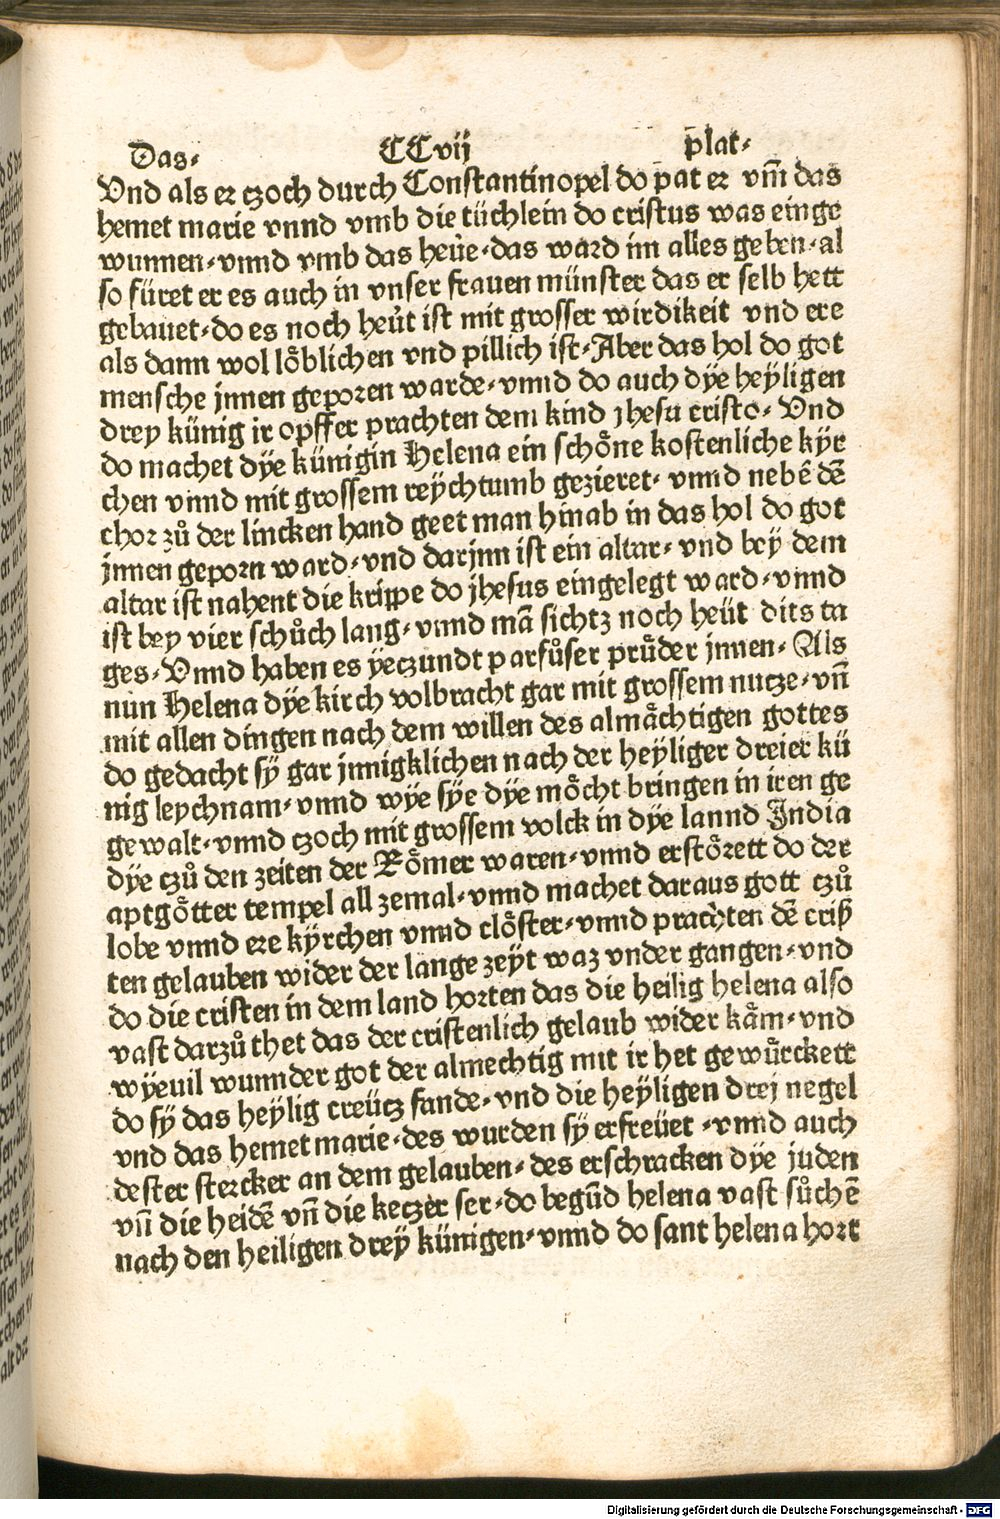 Das· CCvij plat·
Vnd als er tzoch durch Constantinopel do pat er vm̄ das
hemet marie vnnd vmb die tüchlein do cristus was einge
wunnen·vnnd vmb das heüe·das ward im alles geben·al
so füret er es auch in vnser frauen münster das er selb hett
gebauet·do es noch heüt ist mit grosser wirdikeit vnd ere
als dann wol loͤblichen vnd pillich ist·Aber das hol do got
mensche jnnen geporen warde·vnnd do auch dÿe heÿligen
drey künig ir opffer prachten dem kind jhesu cristo· Vnd
do machet dÿe künigin Helena ein schoͤne kostenliche kÿr
chen vnnd mit grossem reÿchtumb gezieret· vnnd nebē dē
chor zů der lincken hand geet man hinab in das hol do got
jnnen geporn ward·vnd darjnn ist ein altar· vnd beÿ dem
altar ist nahent die krippe do jhesus eingelegt ward·vnnd
ist bey vier schůch lang·vnnd mā sichtz noch heüt dits ta
ges·Vnnd haben es ÿeczundt parfůser prüder jnnen· Als
nun Helena dÿe kirch volbracht gar mit grossem nutze·vn̄
mit allen dingen nach dem willen des almaͤchtigen gottes
do gedacht sÿ gar jnnigklichen nach der heÿliger dreier kü
nig leychnam·vnnd wÿe sÿe dÿe moͤcht bringen in iren ge
gewalt·vnnd tzoch mit grossem volck in dÿe lannd India
dÿe tzů den zeiten der Roͤmer waren·vnnd erstoͤrett do der
aptgoͤtter tempel all zemal·vnnd machet daraus gott tzů
lobe vnnd ere kÿrchen vnnd cloͤster·vnnd prachten dē criß
ten gelauben wider der lange zeÿt waz vnder gangen·vnd
do die cristen in dem land horten das die heilig helena also
vast darzů thet das der cristenlich gelaub wider kaͤm·vnd
wÿeuil wunnder got der almechtig mit ir het gewürckett
do sÿ das heÿlig creütz fande·vnd die heÿligen drej negel
vnd das hemet marie·des wurden sÿ erfreüet ·vnnd auch
dester stercker an dem gelauben· des erschracken dÿe juden
vn̄ die heidē vn̄ die ketzer ser·do begūd helena vast sůchē
nach den heiligen dreÿ künigen·vnnd do sant helena hort
Digitalisierung gefördert durch die Deutsche Forschungsgemeinschaft - DFG